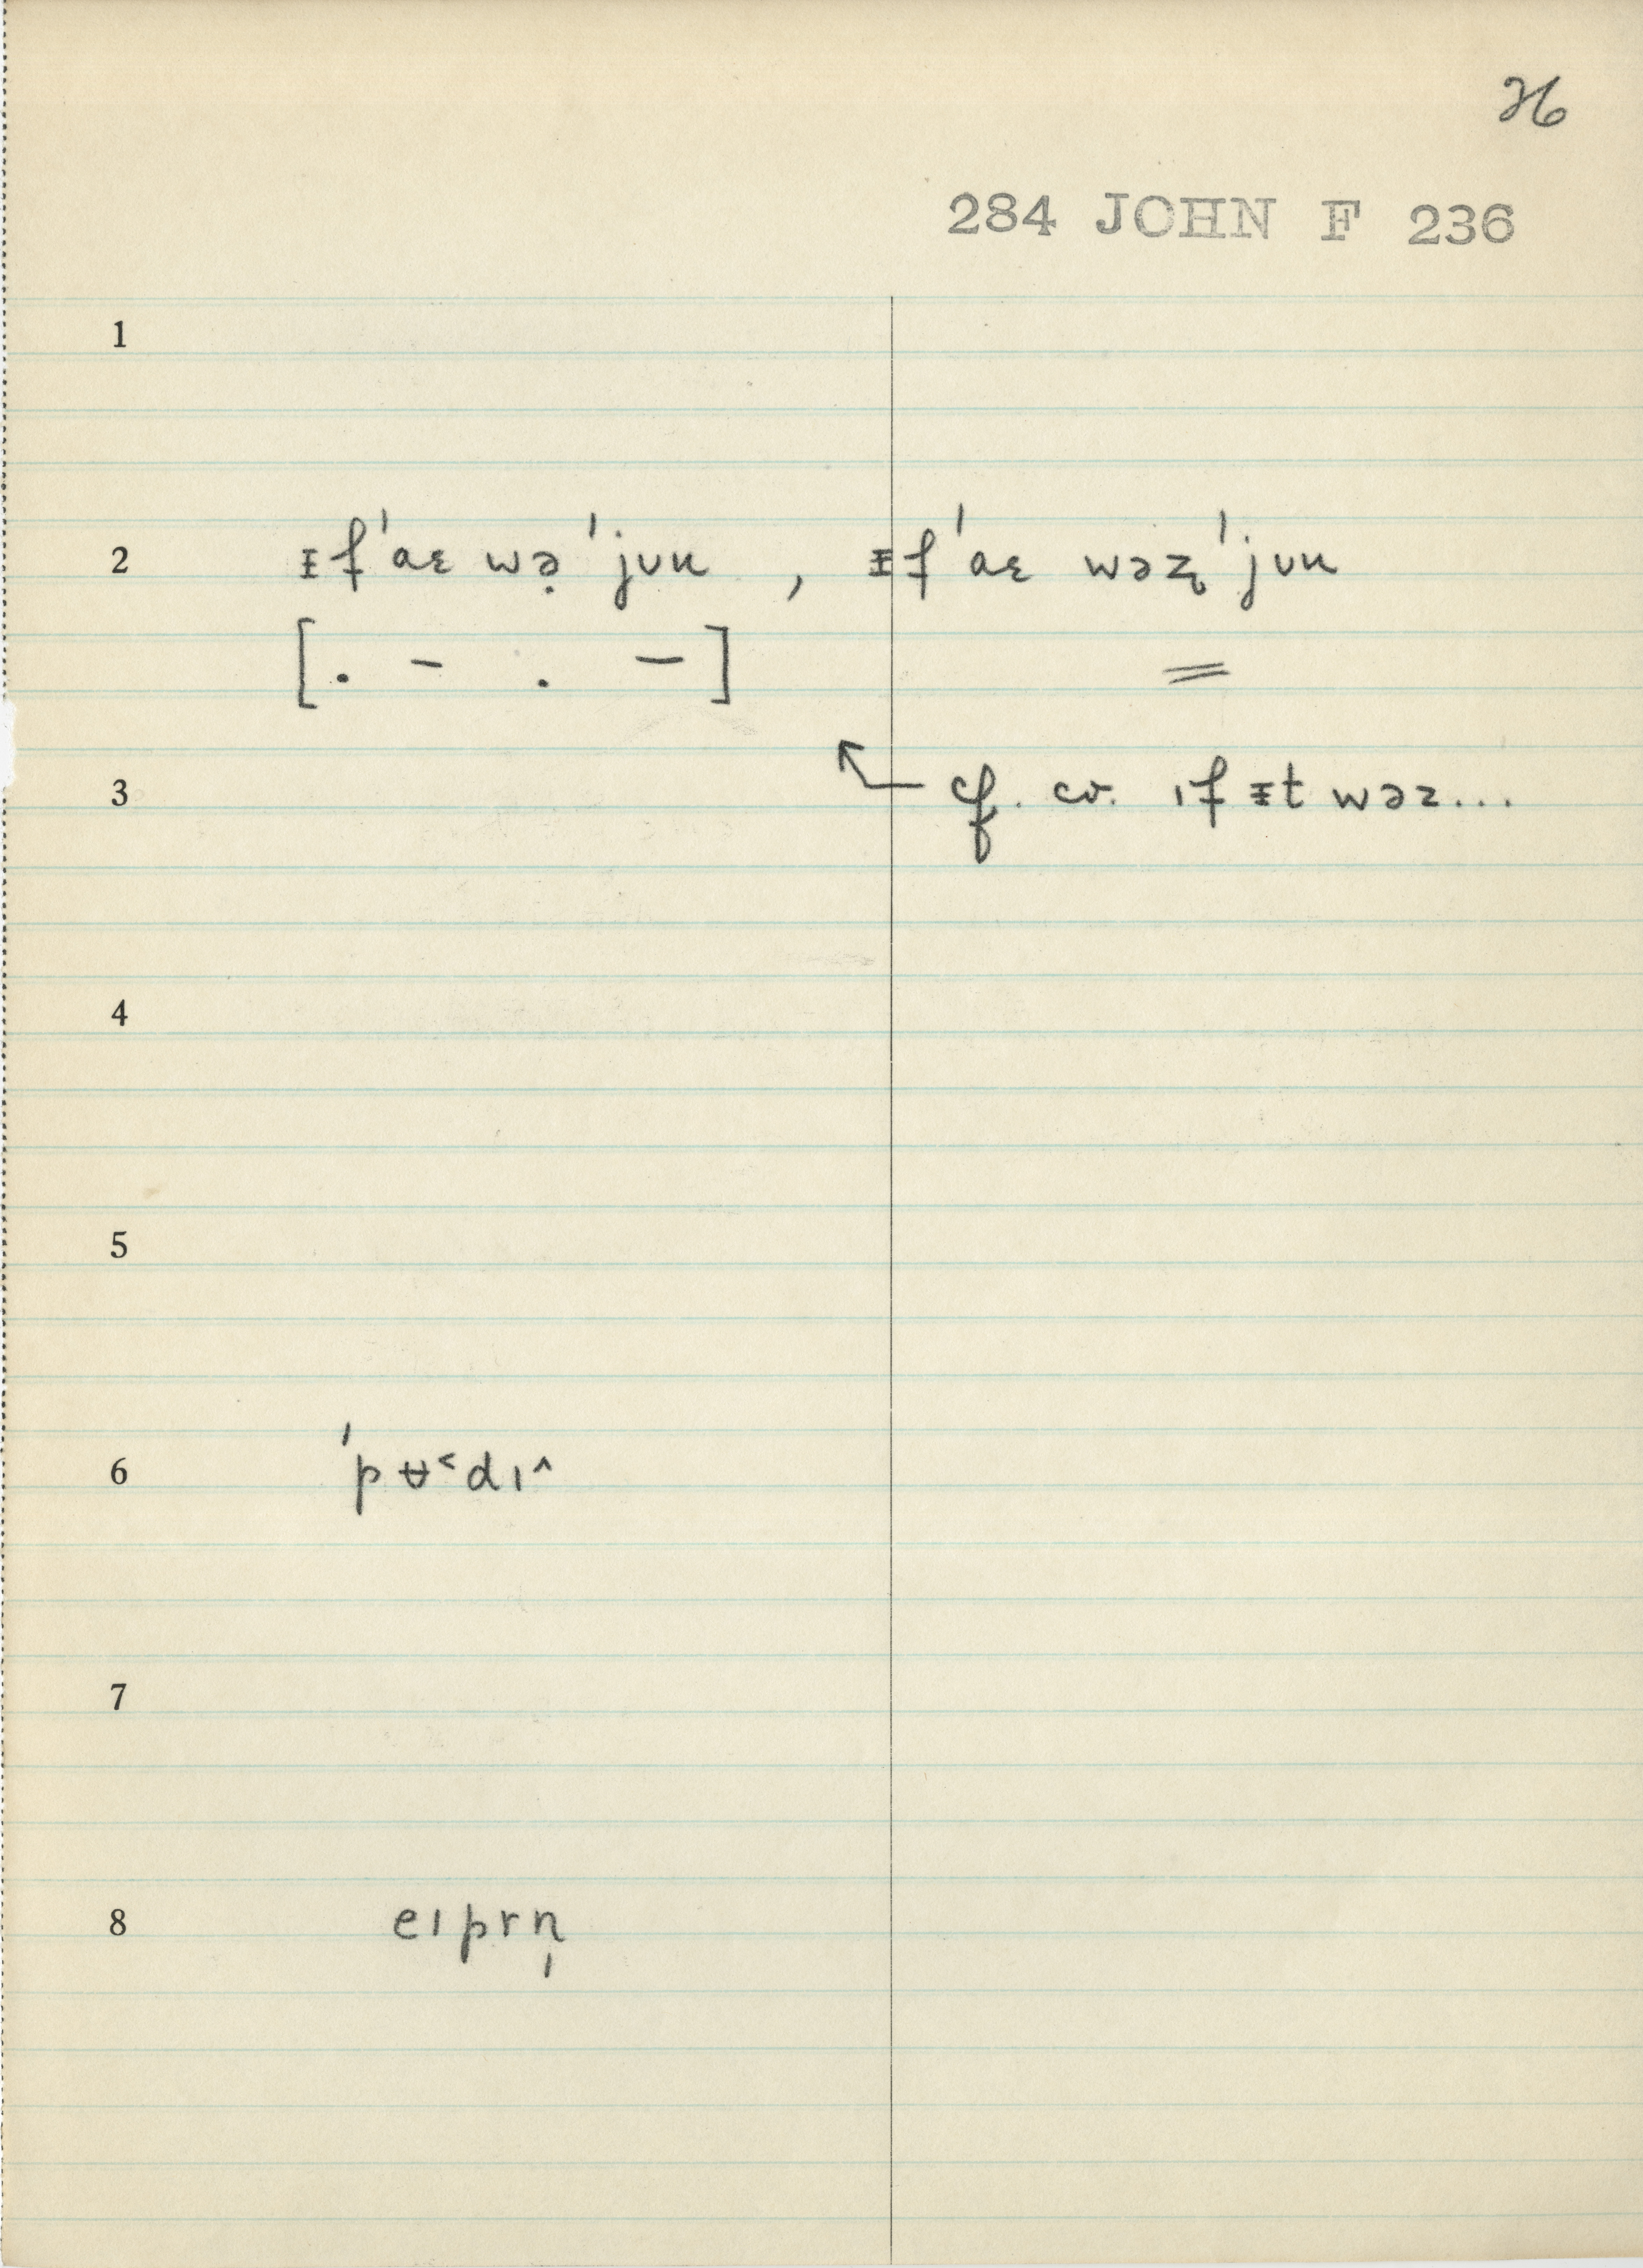 26
284 JOHN F 236
1
2 ᵻf ˈaɛ wə̣ ˈjuu , ᵻf ˈaɛ wəʐ ˈjuu
[. – . –] =
3 cf. cv. ıf ᵻt wəz...
4
5
6 ˈpʉ˂dı˄
7
8 eıprn̩